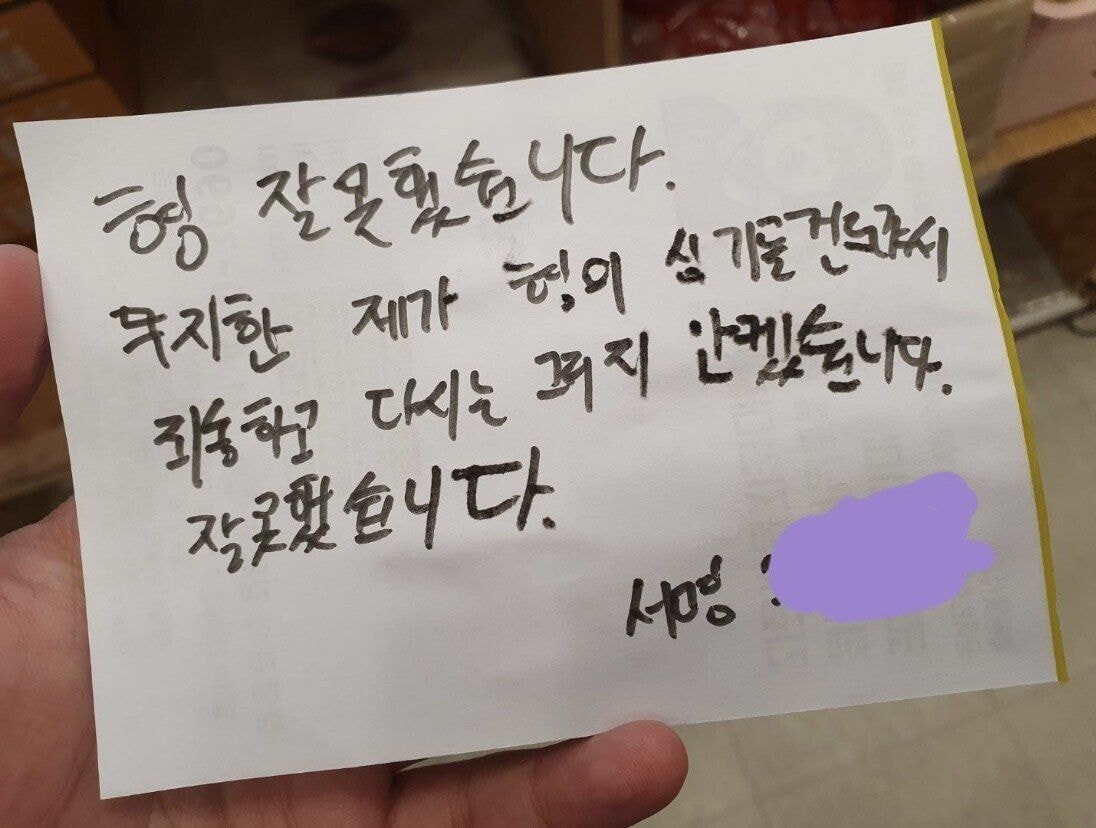 형 잘못했습니다.
무지한 제가 형의 심기를 건드려서
죄송하고 다시는 그러지 안켔습니다.
잘못했습니다.
서명 :